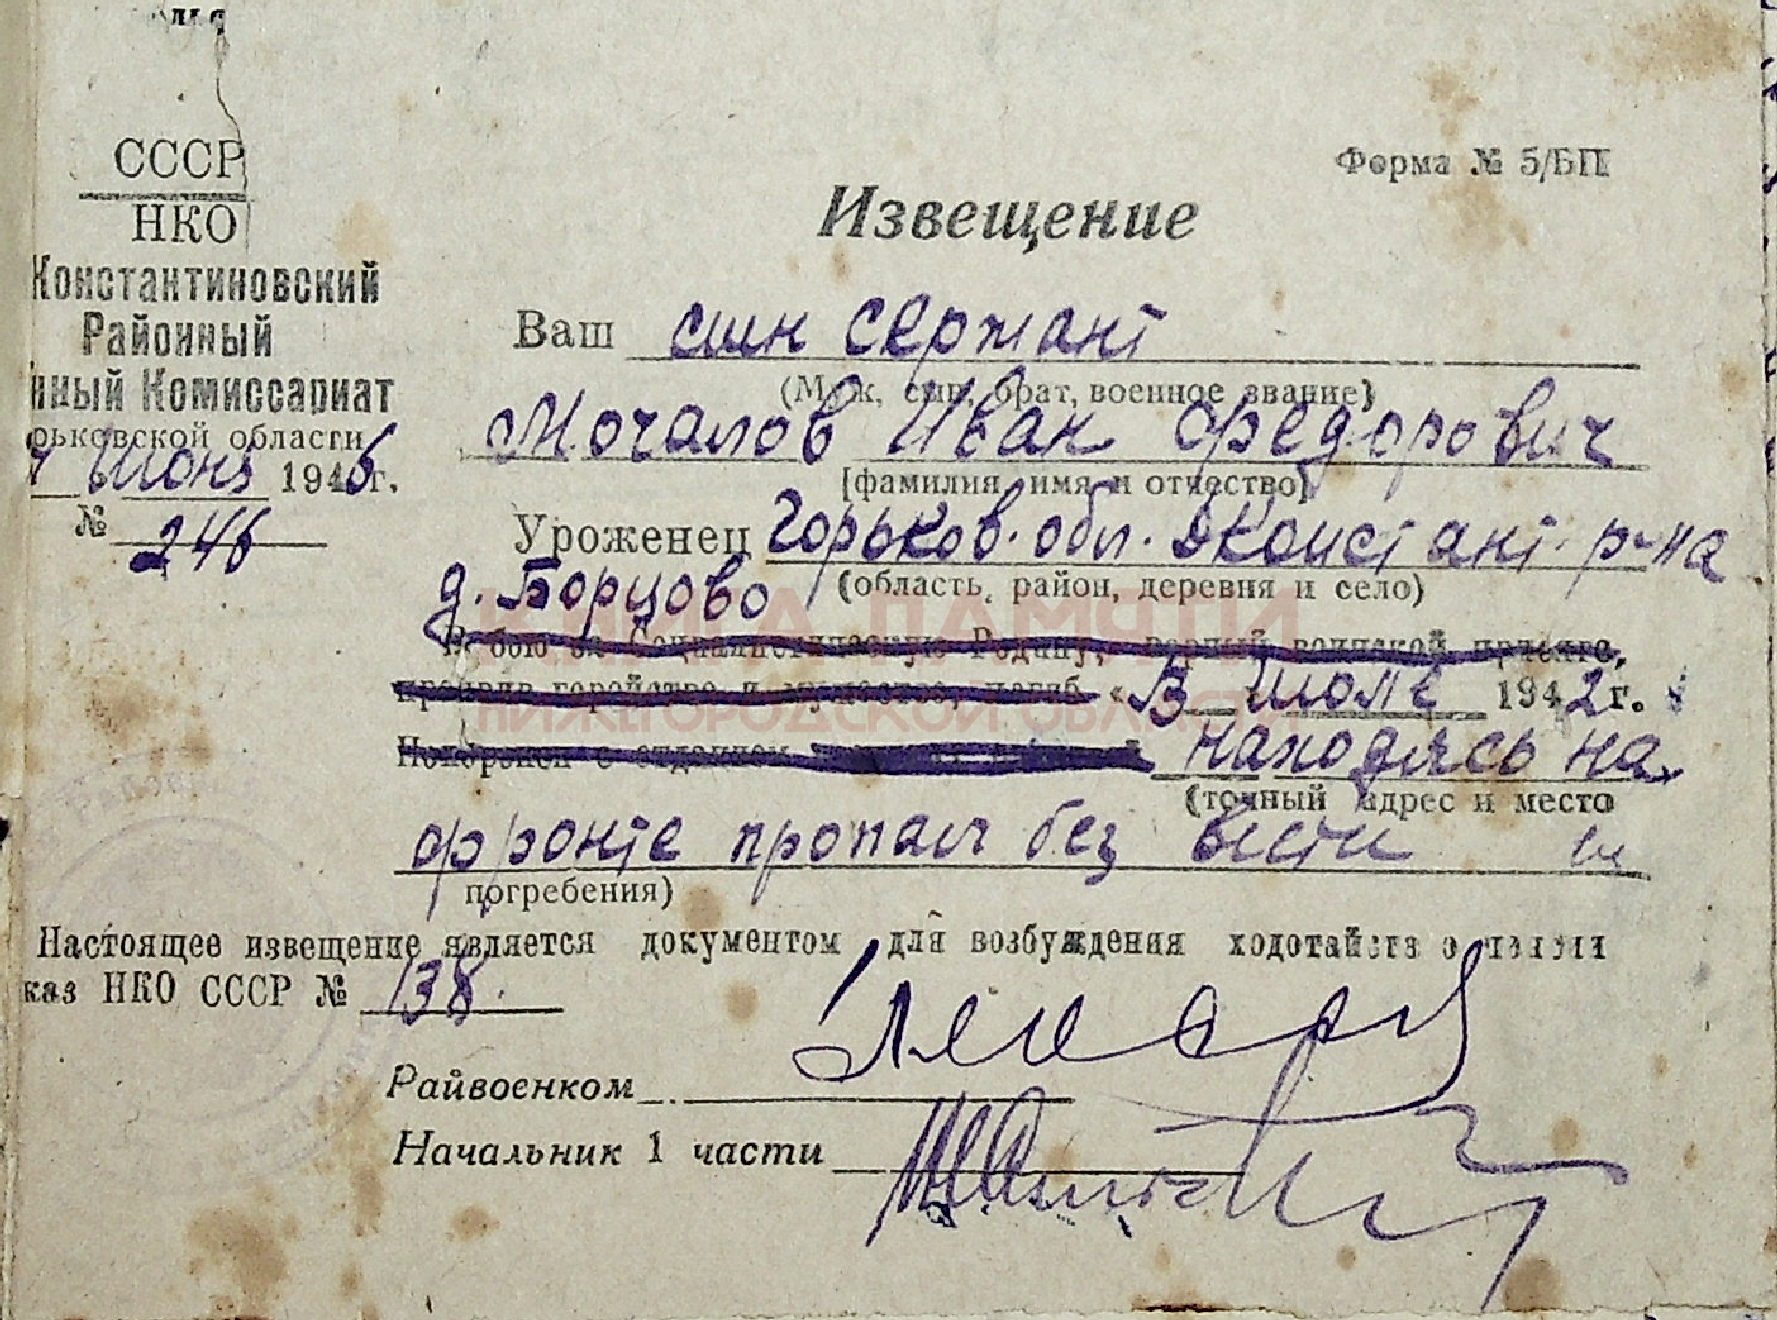 СССР
НКО
Константиновский
Районный
нный Комиссариат
рьковской области
июня 1946 г.
№ 246
Форма № 5/БП
Извещение
Ваш сын сержант
(Муж, сын, брат, военное звание)
Мочалов Иван Федорович
(фамилия, имя и отчество)
Уроженец Горьков. обл. Дконстант. р-на
(область, район, деревня и село)
д. Борцово
В бою за Социалистическую Родину, верный воинской присяге,
проявив геройство и мужество, погиб « В июле 1942 г.
Похоронен с отданием находясь на
(точный адрес и место
фронте пропал без вести
погребения)
Настоящее извещение является документом для возбуждения ходатайств о
каз НКО СССР № 138.
Райвоенком
Начальник 1 части
КНИГА ПАМЯТИ
НИЖЕГОРОДСКОЙ ОБЛАСТИ